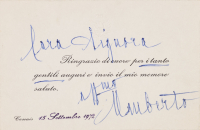 Cara Signora
Ringrazio di cuore per i tanto
gentili auguri e invio il mio memore
saluto.
Umberto
15 Settembre 1972